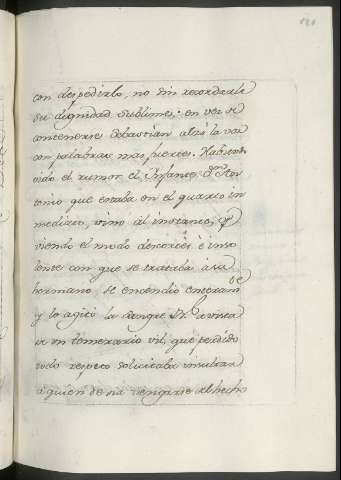 121
con despedirlo, no sin recordarle
su dignidad sublime: en vez de
contenerse Sebastian alzó la voz
con palabras mas fuertes. Habiendo
oido el rumor el Infante Dn. An
tonio que estaba en el quarto in
mediato, vino al instante, y
viendo el modo descortés è inso
lente con que se trataba à su
hermano se encendió enteramte
y lo agitó la sangre R.l a vista
de un temerario vil, que perdido
todo respeto solicitaba insultar
a quien devia vengarse el hecho